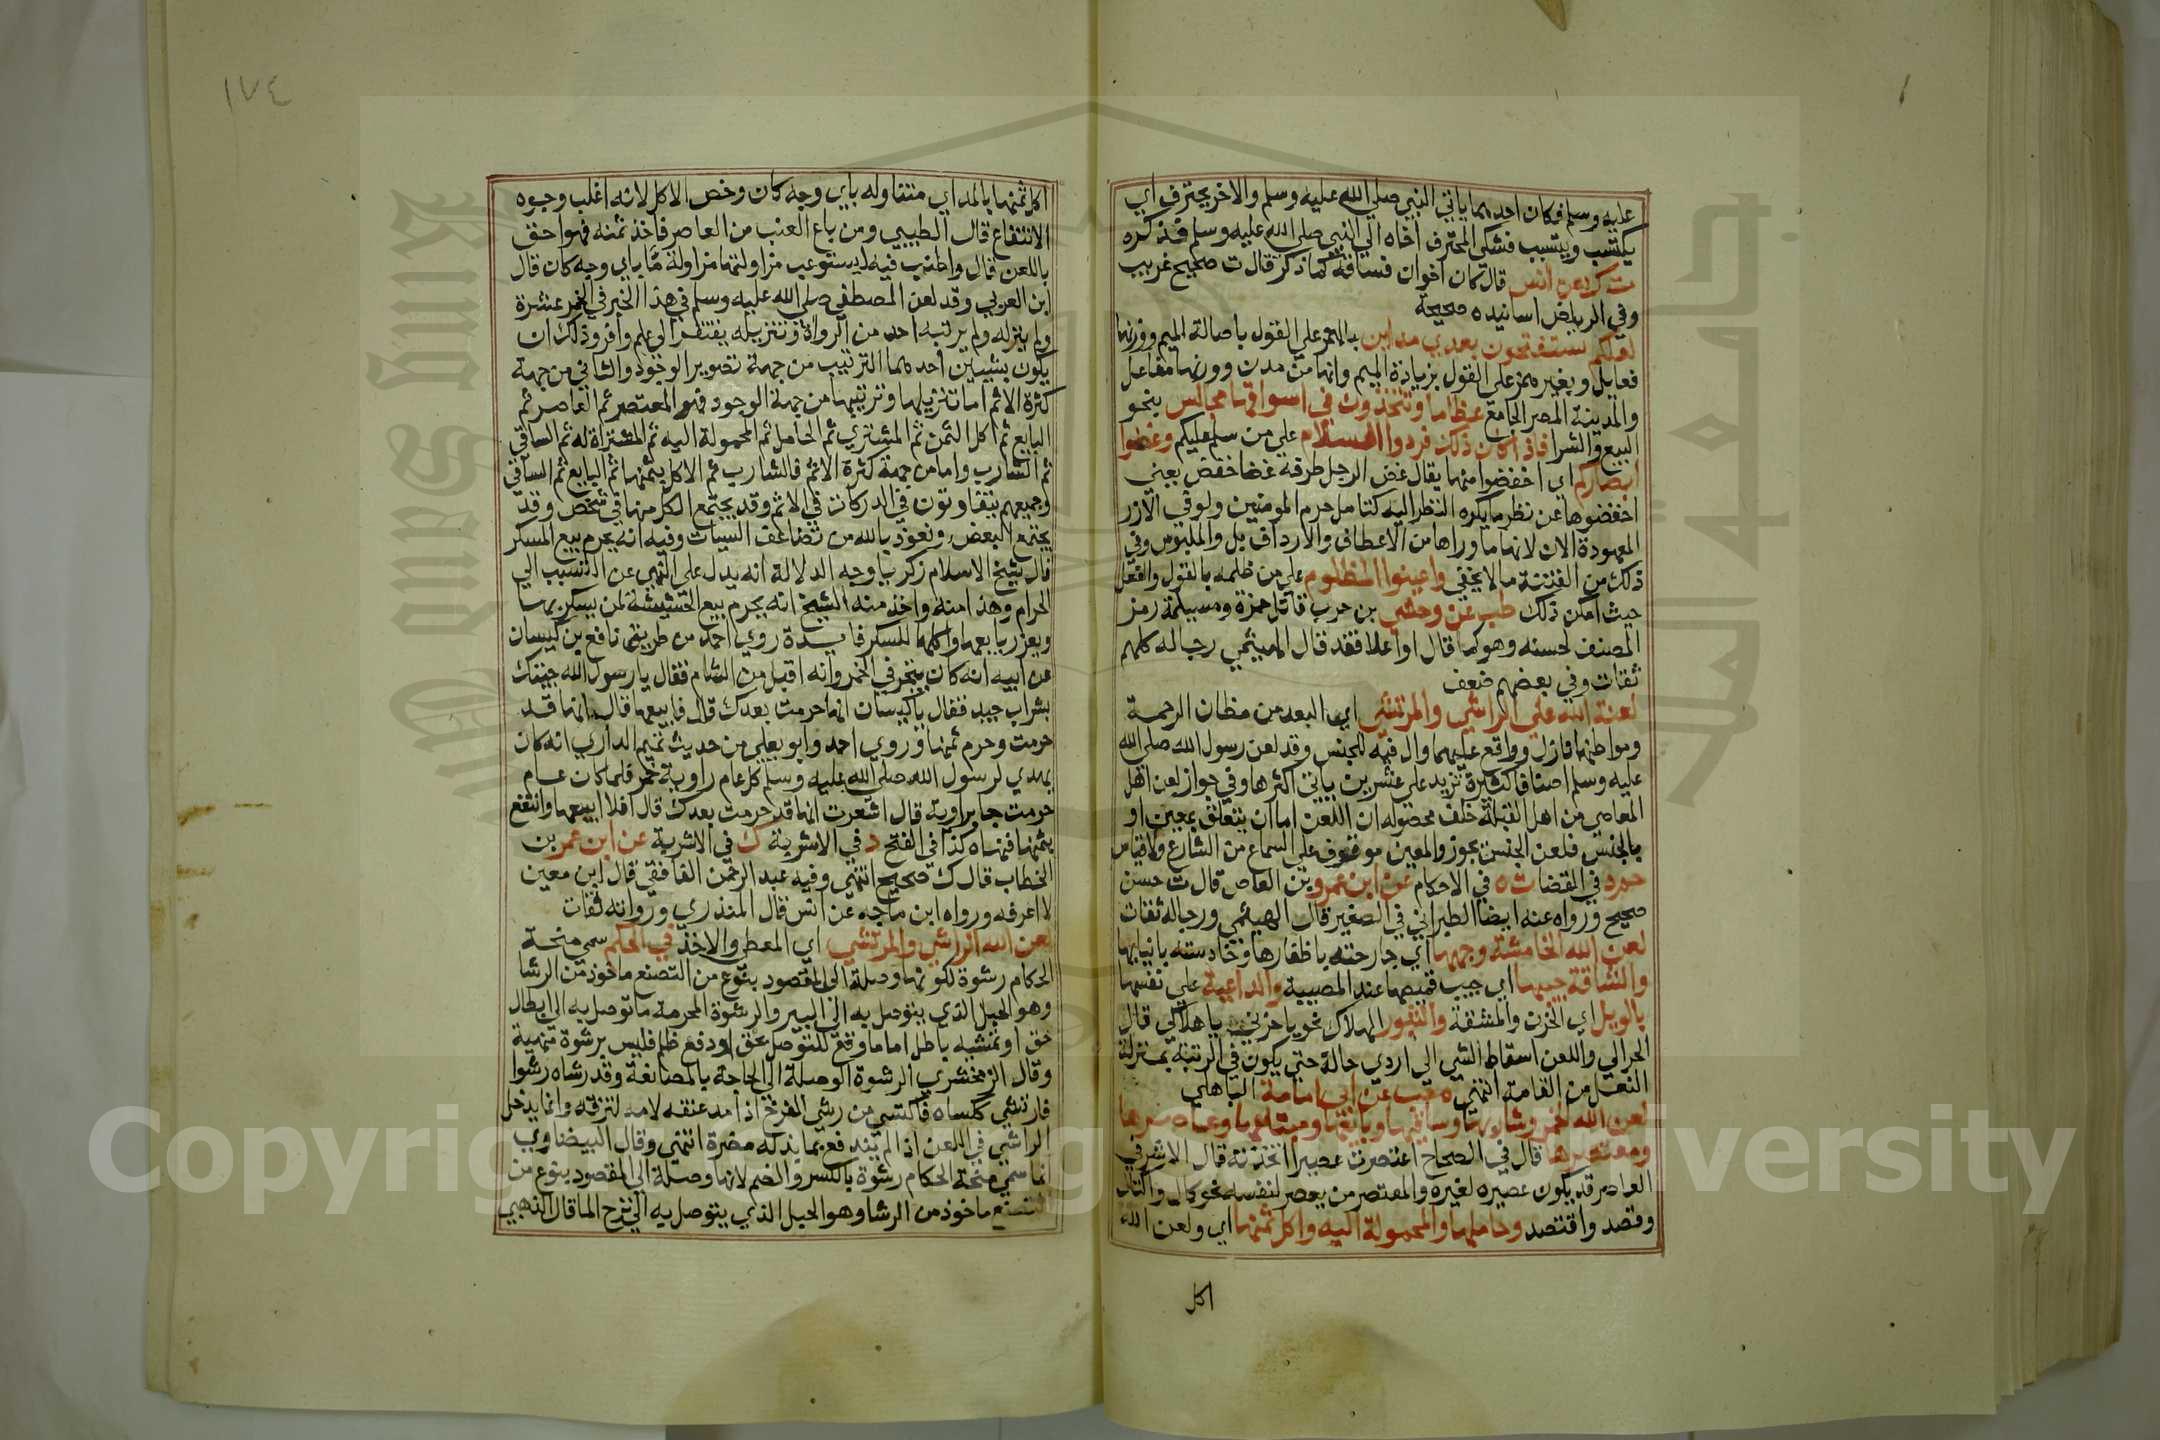 عليه وسلم فكان احدهما ياتي النبي صلي الله عليه وسلم والاخر يحترف اي
يكتسب ويتسبب فشكي المحترف اخاه الي النبي صلي الله عليه وسلم فذكره
ت ك د عن انس قال كان اخوان فساقه كما ذكر قال ت صحيح غريب
وفي الرياض اسانيده صحيحة
لعلكم ستفتحون بعدي مداين بالهمز علي القول باصالة الميم ووزنها
فعايل وبغير همز علي القول بزيادة الميم وانها من مدن ووزنها مفاعل
والمدينة المصر الجامع عظاما وتتخذون في اسواقها مجالس بنحو
البيع والشرا فاذا كان ذلك فردوا السلام علي من سلم عليكم وغضوا
ابصاركم اي اخفضوا منها يقال غض الرجل طرفه غضا خفض يعني
اخفضوها عن نظر ما يكره النظر اليه كتامل حرم المومنين ولو في الازر
المعهودة الان لانها ما وراها من الاعطاف والارداف بل والملبوس وفي
ذلك من الفتنة ما لا يخفي واعينوا المظلوم علي من ظلمه بالقول والفعل
حيث امكن ذلك طب عن وحشي بن حرب قاتل حمزة ومسيلمة رمز
المصنف لحسنه وهو كما قال او اعلا فقد قال الهيثمي رجاله كلهم
ثقات وفي بعضهم ضعف
لعنة الله علي الراشي والمرتشي اي البعد من مظان الرحمة
ومواطنها نازل وواقع عليهما وال فيه للجنس وقد لعن رسول الله صلي الله
عليه وسلم اصنافا كثيرة تزيد علي عشرين ياتي اكثرها وفي جواز لعن اهل
المعاصي من اهل القبلة خلف محصوله ان اللعن اما ان يتعلق بمعين او
بالجنس فلعن الجنس يجوز والمعين موقوف علي السماع من الشارع ولا قياس
حم د في القضا ت ه في الاحكام عن ابن عمرو بن العاص قال ت حسن
صحيح ورواه عنه ايضا الطبراني في الصغير قال الهيثمي ورجاله ثقات
لعن الله الخامشة وجهها اي جارحته باظفارها وخادشته بانيابها
والشاقة جيبها اي جيب قميصها عند المصيبة والداعية علي نفسها
بالويل اي الحزن والمشقة والثبور الهلاك نحو يا حزني يا هلاكي قال
الحرالي واللعن اسقاط الشي الي اردي حالة حتي يكون في الرتبة بمنزلة
النعل من القامة انتهي ه حب عن ابي امامة الباهلي
لعن الله الخمر وشاربها وساقيها وبايعها ومبتاعها وعاصرها
ومعتصرها قال في الصحاح اعتصرت عصيرا اتخذته قال الاشرفي
العاصر قد يكون عصيره لغيره والمعتصر من يعصر لنفسه نحو كال واكتال
وقصد واقتصد وحاملها والمحمولة اليه واكل ثمنها اي ولعن الله
اكل
١٧٤
اكل ثمنها بالمد اي متناوله باي وجه كان وخص الاكل لانه اغلب وجوه
الانتفاع قال الطيبي ومن باع العنب من العاصر فاخذ ثمنه فهو احق
باللعن قال واطنب فيه ليستوعب مزاولتها مزاولة ما باي وجه كان قال
ابن العربي وقد لعن المصطفي صلي الله عليه وسلم في هذا الخبر في الخمر عشرة
ولم ينزله ولم يرتبه احد من الرواة وتنزيله يفتقر الي علم وافر وذلك ان
يكون بشيين احدهما الترتيب من جهة تصوير الوجود والثاني من جهة
كثرة الاثم اما تنزيلها وترتيبها من جهة الوجود فهو المعتصر ثم العاصر ثم
البايع ثم اكل الثمن ثم المشتري ثم الحامل ثم المحمولة اليه ثم المشتراة له ثم الساقي
ثم الشارب واما من جهة كثرة الاثم فالشارب ثم الاكل بثمنها ثم البايع ثم الساقي
وجميعهم يتفاوتون في الدركات في الاثم وقد يجتمع الكل منها في شخص وقد
يجتمع البعض ونعوذ بالله من تضاعف السيات وفيه انه يحرم بيع المسكر
قال شيخ الاسلام زكريا وجه الدلالة انه يدل علي النهي عن التسبب الي
الحرام وهذا منه واخذ منه الشيخ انه يحرم بيع الحشيشة لمن يسكر بها
ويعزر بايعها واكلها للسكر فايدة روي احمد من طريق نافع بن كيسان
عن ابيه انه كان يتجر في الخمر وانه اقبل من الشام فقال يا رسول الله جيتك
بشراب جيد فقال يا كيسان انها حرمت بعدك قال فابيعها قال انها قد
حرمت وحرم ثمنها وروي احمد وابو يعلي من حديث تميم الداري انه كان
يهدي لرسول الله صلي الله عليه وسلم كل عام راوية خمر فلما كان عام
حرمت جا براوية قال اشعرت انها قد حرمت بعدك قال افلا ابيعها وانتفع
بثمنها فنهاه كذا في الفتح د في الاشربة ك في الاشربة عن ابن عمر بن
الخطاب قال ك صحيح انتهي وفيه عبد الرحمن الغافقي قال ابن معين
لا اعرفه ورواه ابن ماجه عن انس قال المنذري ورواته ثقات
لعن الله الراشي والمرتشي اي المعطي والاخذ في الحكم سمي منحة
الحكام رشوة لكونها وصلة الي المقصود بنوع من التصنع ماخوذ من الرشا
وهو الحبل الذي يتوصل به الي البير والرشوة المحرمة ما توصل به الي ابطال
حق او تمشية باطل اما ما وقع للتوصل لحق او دفع ظلم فليس برشوة منهية
وقال الزمخشري الرشوة الوصلة الي الحاجة بالمصانعة وقد رشاه رشوا
فارتشي كلساه فاكتسي من رشي الفرخ اذا مد عنقه لامه لتزقه وانما يدخل
الراشي في اللعن اذا لم يندفع بما بذله مضرة انتهي وقال البيضاوي
انما سمي منحة الحكام رشوة بالكسر والضم لانها وصلة الي المقصود بنوع من
التصنع ماخوذ من الرشا وهو الحبل الذي يتوصل به الي نزح الما قال الذهبي